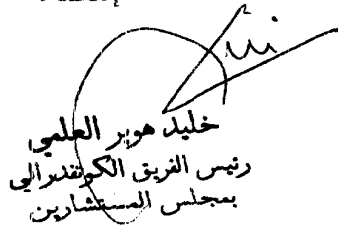 خليد هوير العلمي
رئيس الفريق الكونفدرالي
بمجلس المستشارين